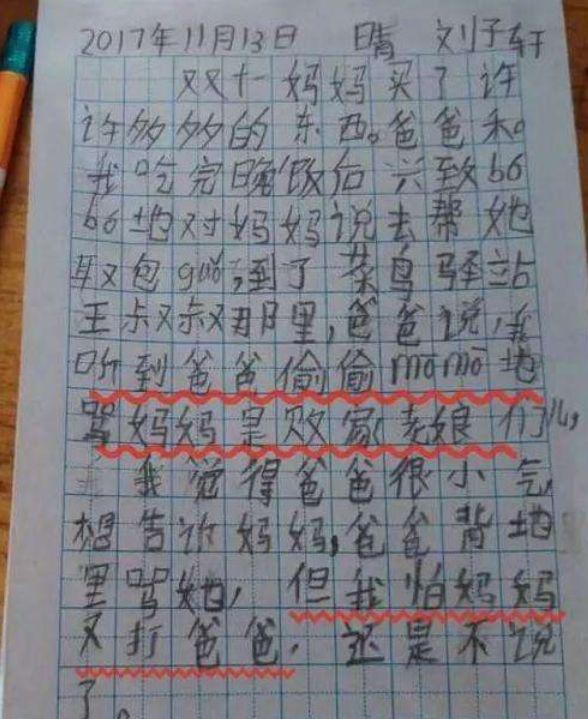 2017年11月13日 晴 刘子轩
双十一妈妈买了许
许多多的东西。爸爸和
我吃完晚饭后兴致bó
bó地对妈妈说去帮她
取包guǒ,到了菜鸟驿站
王叔叔那里,爸爸说,我
听到爸爸偷偷mōmō地
骂妈妈是败家老娘们儿,
我觉得爸爸很小气,
想告诉妈妈,爸爸背地
里骂她,但我怕妈妈
又打爸爸,还是不说
了。